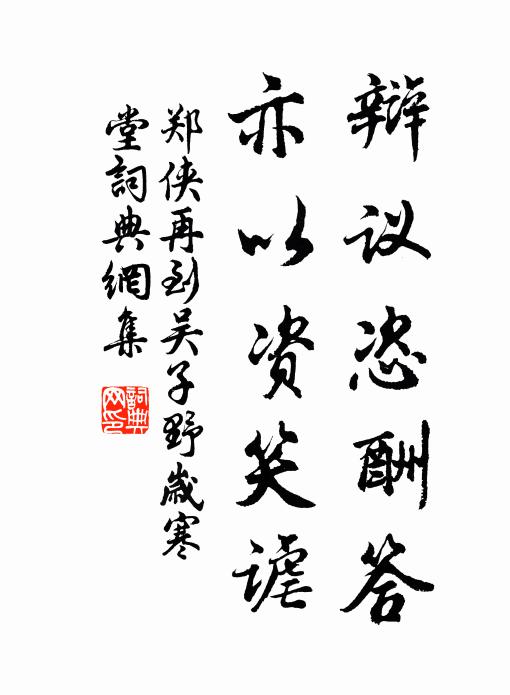 辩议恣酬答
亦以资笑谑
郑侠再到吴子野岁寒
堂詞典網集
詞典
网印